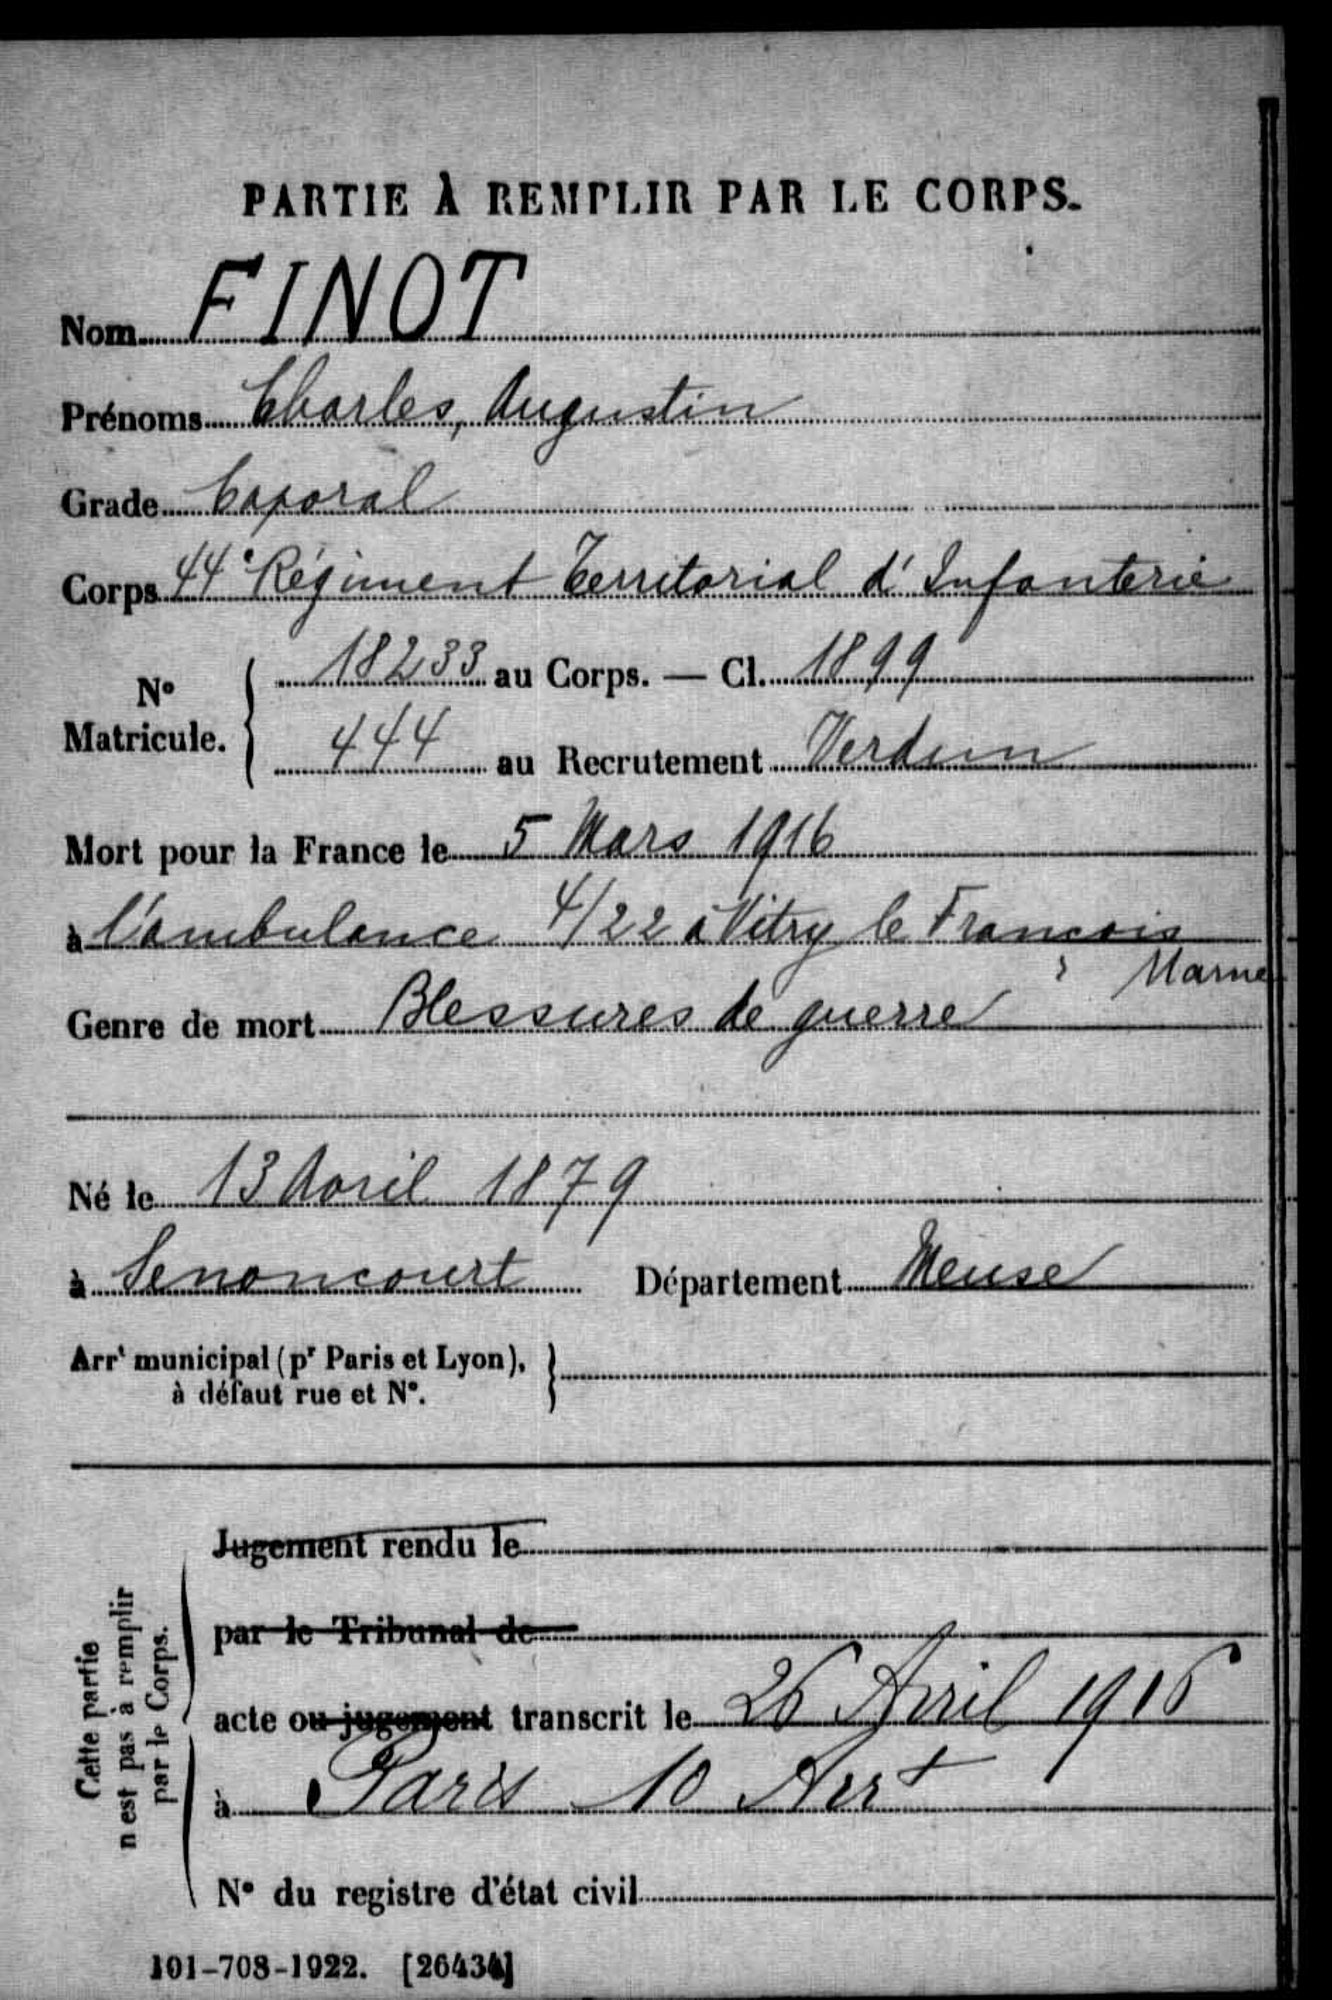 PARTIE À REMPLIR PAR LE CORPS.
Nom FINOT
Prénoms Charles, Augustin
Grade Caporal
Corps 44e Régiment Territorial d'Infanterie
No Matricule. 18233 au Corps. — Cl. 1899
444 au Recrutement Verdun
Mort pour la France le 5 Mars 1916
à l'ambulance 4/22 à Vitry le François
Marne
Genre de mort Blessures de guerre
Né le 13 Avril 1879
à Senoncourt Département Meuse
Arrt municipal (pr Paris et Lyon),
à défaut rue et No.
Cette partie
n'est pas à remplir
par le Corps.
Jugement rendu le
par le Tribunal de
acte ou jugement transcrit le 26 Avril 1916
à Paris 10 Arrt
No du registre d'état civil
101-708-1922. [26434]